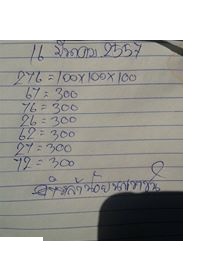 16 มีนาคม 2557
276 = 100x100x100
67 = 300
76 = 300
26 = 300
62 = 300
27 = 300
72 = 300